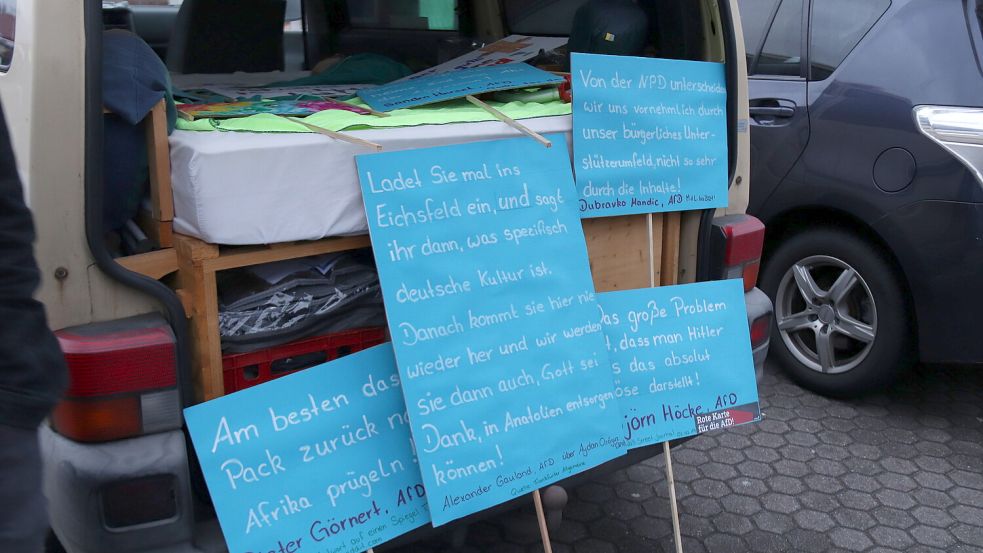 Von der NPD unterscheiden
wir uns vornehmlich durch
unser bürgerliches Unter-
stützerumfeld, nicht so sehr
durch die Inhalte!
Dubravko Mandic, AfD
Ladet Sie mal ins
Eichsfeld ein, und sagt
ihr dann, was spezifisch
deutsche Kultur ist.
Danach kommt sie hier nie
wieder her und wir werden
sie dann auch, Gott sei
Dank, in Anatolien entsorgen
können!
Alexander Gauland, AfD über Aydan
Quelle: Frankfurter Allgemeine
as große Problem
, dass man Hitler
s das absolut
öse darstellt!
jörn Höcke, AfD
Rote Karte
für die AfD!
Am besten das
Pack zurück na
Afrika prügeln!
ieter Görnert, AfD
wort auf einen Spiegel